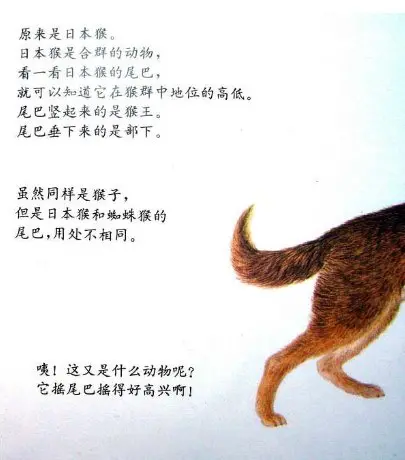 原来是日本猴。
日本猴是合群的动物，
看一看日本猴的尾巴，
就可以知道它在猴群中地位的高低。
尾巴竖起来的是猴王。
尾巴垂下来的是部下。
虽然同样是猴子，
但是日本猴和蜘蛛猴的
尾巴，用处不相同。
咦！这又是什么动物呢？
它摇尾巴摇得好高兴啊！